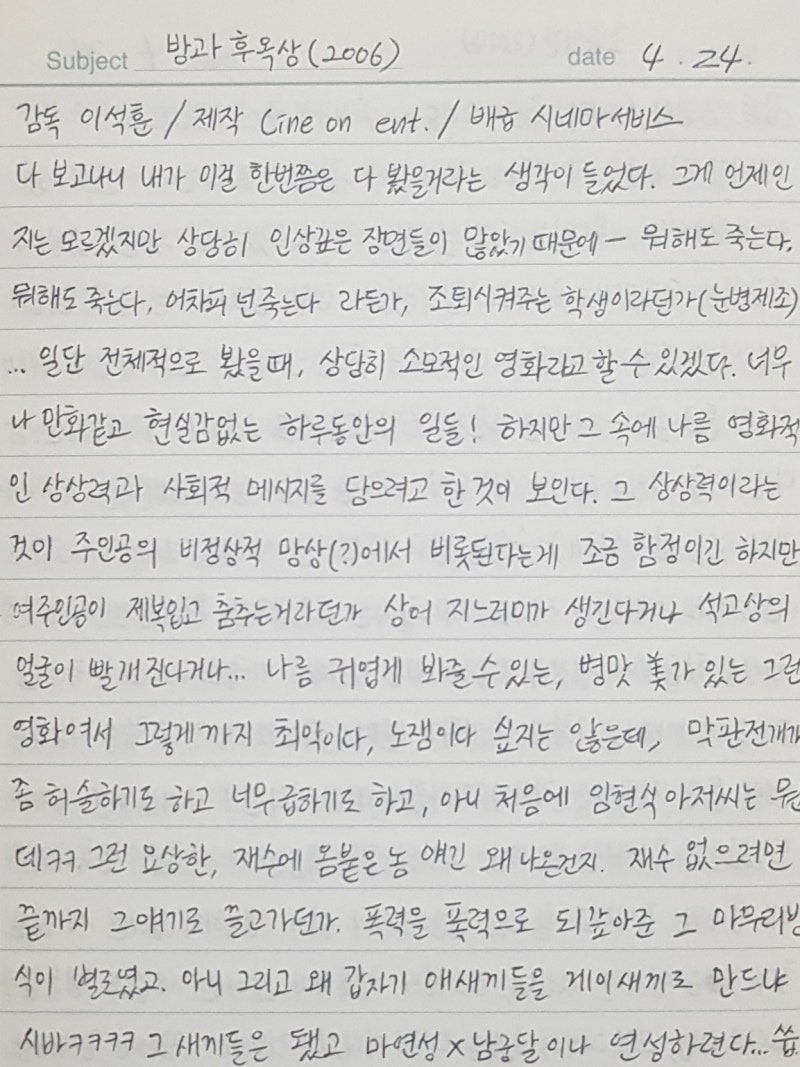 Subject 방과 후 옥상 (2006) date 4. 24.
감독 이석훈 / 제작 Cine on ent. / 배급 시네마서비스
다 보고나니 내가 이걸 한번쯤은 다 봤을거라는 생각이 들었다. 그게 언제인
지는 모르겠지만 상당히 인상깊은 장면들이 많았기 때문에 — 뭐해도 죽는다,
뭐해도 죽는다, 어차피 넌 죽는다 라든가, 조퇴시켜주는 학생이라던가(눈병제조)
... 일단 전체적으로 봤을 때, 상당히 소모적인 영화라고 할 수 있겠다. 너무
나 만화같고 현실감없는 하루동안의 일들! 하지만 그 속에 나름 영화적
인 상상력과 사회적 메시지를 담으려고 한 것이 보인다. 그 상상력이라는
것이 주인공의 비정상적 망상(?)에서 비롯된다는게 조금 함정이긴 하지만
여주인공이 제복입고 춤추는거라던가 상어 지느러미가 생긴다거나 석고상의
얼굴이 빨개진다거나... 나름 귀엽게 봐줄 수 있는, 병맛 美가 있는 그런
영화여서 그렇게까지 최악이다, 노잼이다 싶지는 않은데, 막판전개가
좀 허술하기도 하고 너무 급하기도 하고, 아니 처음에 임현식 아저씨는 뭔
데ㅋㅋ 그런 요상한, 재수에 옴붙은 놈 얘긴 왜 나온건지. 재수 없으려면
끝까지 그얘기로 끌고가던가. 폭력을 폭력으로 되갚아준 그 마무리방
식이 별로였고. 아니 그리고 왜 갑자기 애새끼들을 게이새끼로 만드냐
시바ㅋㅋㅋㅋ 그 새끼들은 됐고 마연성 x 남궁달이나 연성하련다... 씁.